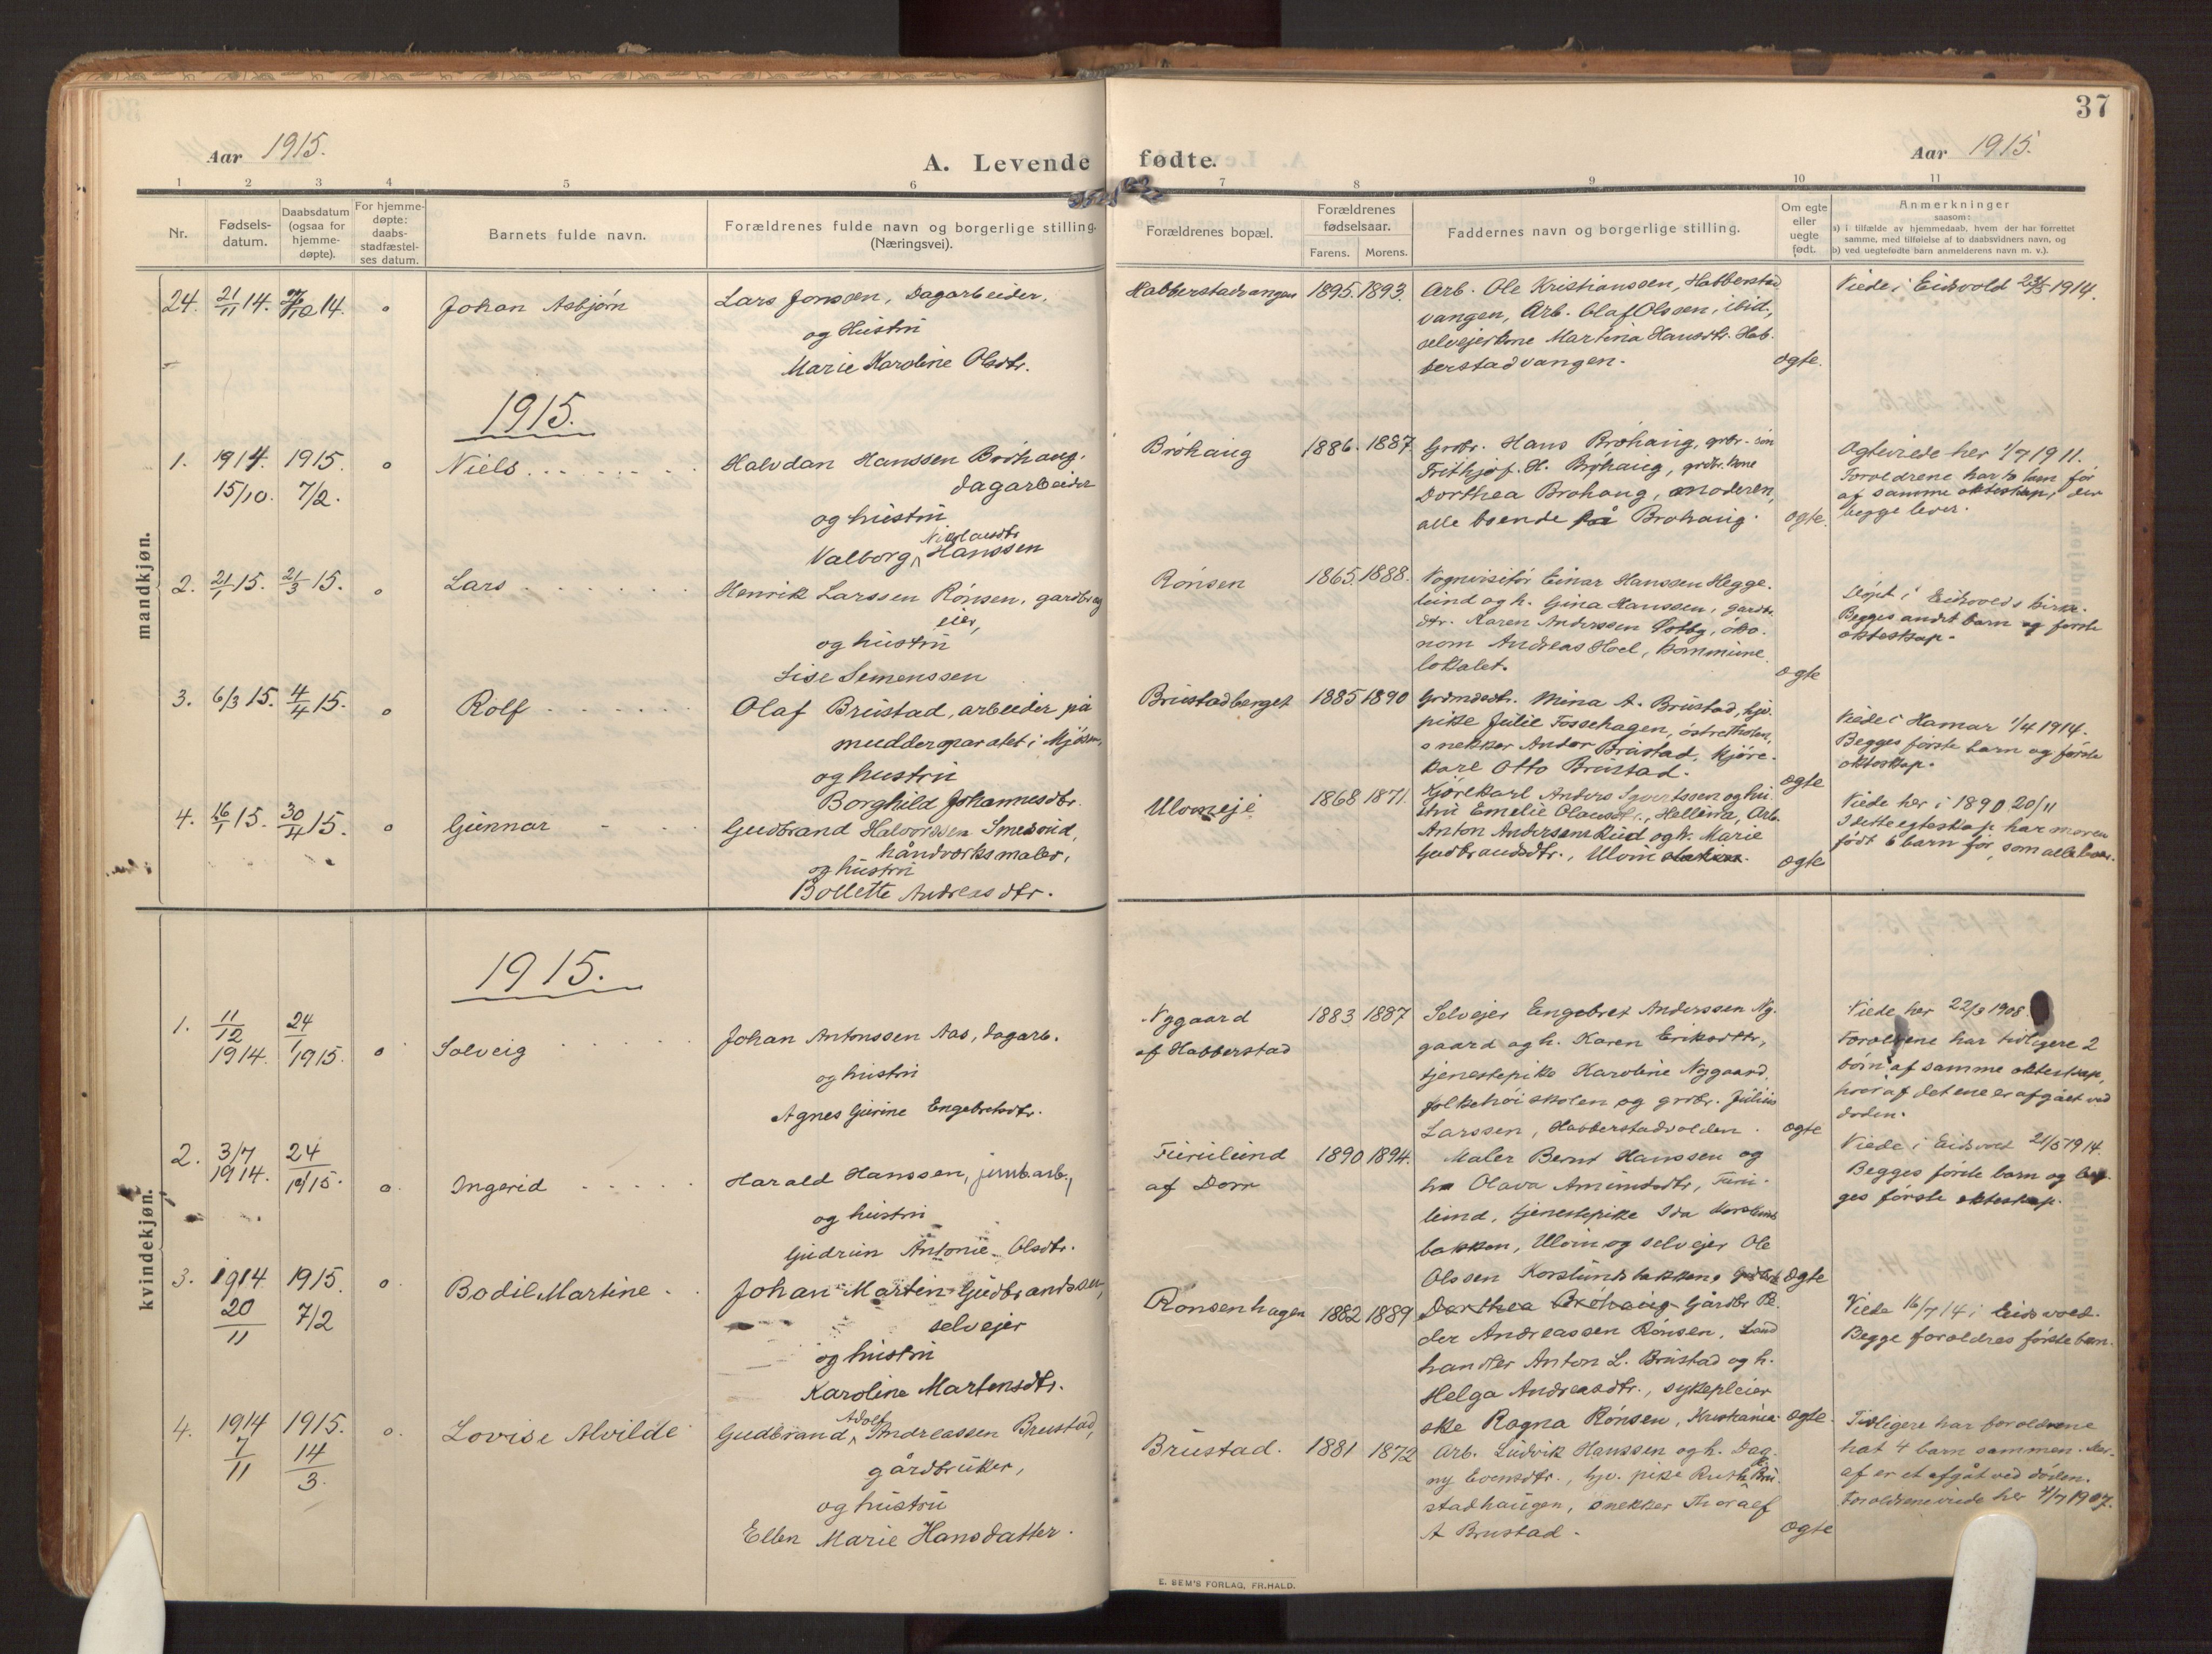 37
Aar 1915.
A. Levende fødte.
Aar 1915.
1 2 3 4 5 6 7 8 9 10 11
Nr.
Fødsels-
datum.
Daabsdatum
(ogsaa for
hjemme-
døpte).
For hjemme-
døpte:
daabs-
stadfæstel-
ses datum.
Barnets fulde navn.
Forældrenes fulde navn og borgerlige stilling.
(Næringsvei).
Forældrenes bopæl.
Forældrenes
fødselsaar.
Farens. Morens.
Faddernes navn og borgerlige stilling.
Om egte
eller
uegte
født.
Anmerkninger
saasom:
a) i tilfælde av hjemmedaab, hvem der har forrettet
samme, med tilføielse af to daabsvidners navn, og
b) ved uegtefødte barn anmelderens navn m. v.).
mandkjøn.
24. 21/11 14. 14. o Johan Asbjørn
Lars Jonssen, Dagarbeider,
og Hustru
Marie Karoline Olsdtr.
Habberstadvangen 1895. 1893.
Arb. Ole Kristianssen, Habberstad
vangen, Arb. Olaf Olssen, ibid.,
selvejerkone Martina Hansdtr. Hab-
berstadvangen.
ægte.
Viede i Eidsvold 1914.
1915.
1. 1914. 1915. o Niels
15/10. 7/2.
Halvdan Hanssen Brøhaug,
dagarbeider
og hustru
Nicolausdtr
Valborg Hanssen
Brøhaug 1886. 1887
Grdbr. Hans Brøhaug, grdbr. søn
Frithjof. H. Brøhaug, grdbr. kone
Dorthea Brøhaug, moderen,
alle boende på Brøhaug.
ægte.
Ægteviede her 1/7 1911.
Forældrene har to barn før
af samme ækteskap, der
begge lever.
2. 21/1 15. 21/3 15. o Lars
Henrik Larssen Rønsen, gardbrug
eier,
og hustru
Lise Semenssen
Rønsen 1865. 1888.
Vognvisitør Einar Hanssen Hegge-
lund og h. Gina Hanssen, gardbr.
dtr. Karen Anderssen, øko-
nom Andreas Hoel, Kommune
lokalet.
ægte
Døpt i Eidsvolds kirke.
Begges andet barn og første
ækteskap.
3. 6/3 15. 4/4 15. o Rolf
Olaf Brustad, arbeider på
mudderaparatet i Mjøsen,
og hustru
Borghild Johannesdtr.
Brustadberget 1885 1890
Grdmdsdtr. Mina A. Brustad, hjv.
pike Julie Fossehagen, østre Thoten,
snekker Andor Brustad, kjøre-
karl Otto Brustad.
ægte
Viede i Hamar 1/4 1914.
Begges første barn og første
ækteskap.
4. 16/1 15. 30/4 15. o Gunnar
Gudbrand Halvorssen Smedrud,
håndværksmaler,
og hustru
Bollette Andreasdtr.
Ulvineje 1868 1871.
Kjørekarl Anders Syvertssen og hu-
stru Emelie Olausdtr., Hellerua, Arb.
Anton Andersen Rud og h. Marie
Gudbrandsdtr., Ulvin
ægte
Viede her i 1890 20/11
I dette egteskap har moren
født 6 barn før, som alle lever.
kvindekjøn.
1915.
1. 11/12 24/1
1914. 1915. o Solveig
Johan Antonssen Aas, dagarb.
og hustru
Agnes Gurine Engebretsdtr.
Nygaard
af Habberstad
1883 1887
Selvejer Engebret Anderssen Ny-
gaard og h. Karen Eriksdtr,
tjenestepike Karoline Nygaard,
folkehøiskolen og grdbr. Julius
Larssen, Habberstadvolden.
ægte
Viede her 22/3 1908.
Forældrene har tidligere 2
børn af samme ækteskap,
hvoraf det ene er afgået ved
døden.
2. 3/7 24
1914. 1915. o Ingerid
Harald Hanssen, jernb.arb.,
og hustru
Gudrun Antonie Olsdtr.
Furulund
af Dorr
1890 1894.
Maler Bernt Hanssen og
h. Olava Amundsdtr, Furu-
lund, tjenestepike Ida Korslunds
bakken, Ulvin og selvejer Ole
Olssen Korslundsbakken,
ægte
Viede i Eidsvold 21/5 1914.
Begges første barn og beg-
ges første ækteskap.
3. 1914. 1915. o Bodil Martine
20/11 7/2
Johan Martin Gudbrandssen,
selvejer
og hustru
Karoline Martensdtr.
Rønsenhagen 1882 1889
Dorthea Brøhaug Gårdbr. Pe-
der Andreassen Rønsen, Land
handler Anton L. Brustad og h.
Helga Andreasdtr., sykepleier
ske Ragna Rønsen, Kristiania
ægte.
Viede 16/7 14 i Eidsvold.
Begge forældres første barn.
4. 1914 1915. o. Lovise Alvilde
7/11 14/3.
Adolf
Gudbrand Andreassen Brustad,
gårdbruker,
og hustru
Ellen Marie Hansdatter.
Brustad. 1881 1872
Arb. Ludvik Hanssen og h. Dag-
ny Evensdtr., hjv. pike Ruth Bru-
stadhaugen, snekker Thoralf
A Brustad.
ægte
Tidligere har forældrene
hat 4 barn sammen. Her-
af er et afgåt ved døden.
Forældrene viede her 4/7 1907.
E. SEM'S FORLAG, FR.HALD.